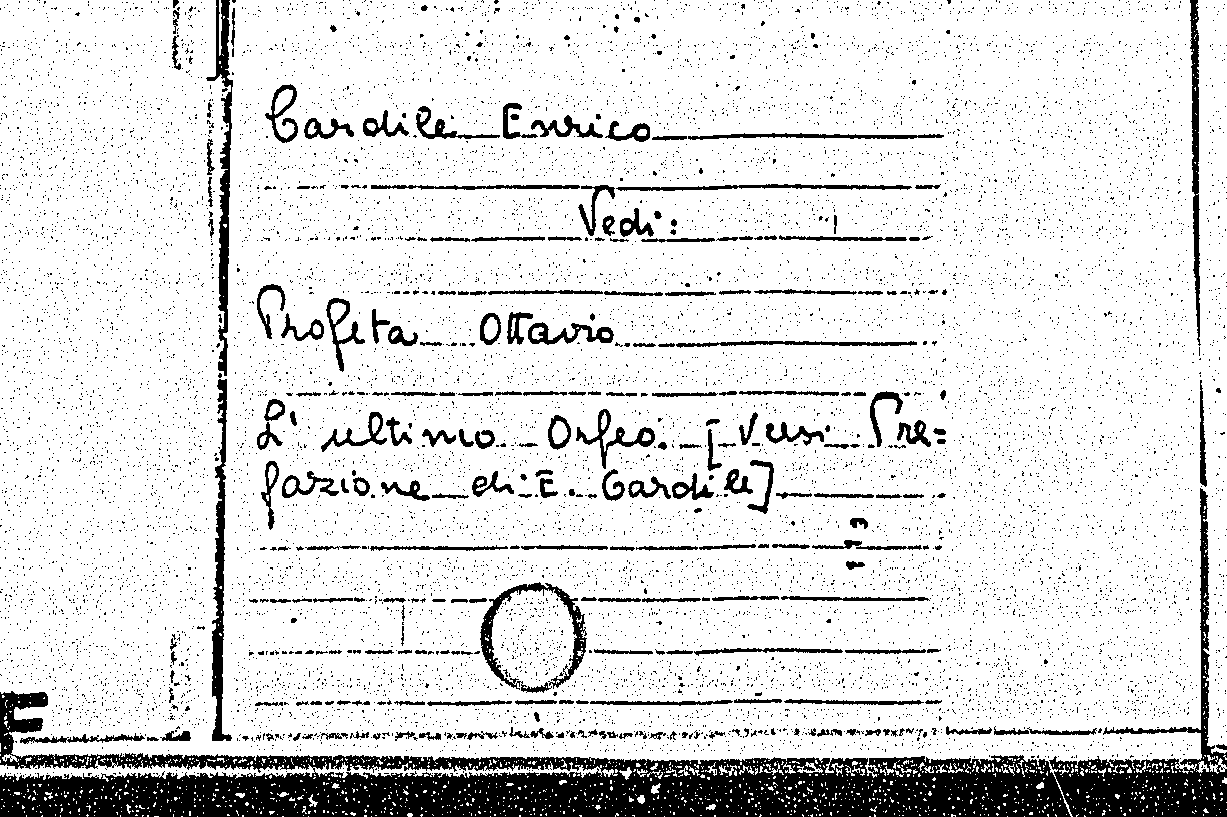 Cardile Enrico
Vedi:
Profeta Ottavio
L'ultimo Orfeo. [Versi Pre=
fazione di E. Cardile]